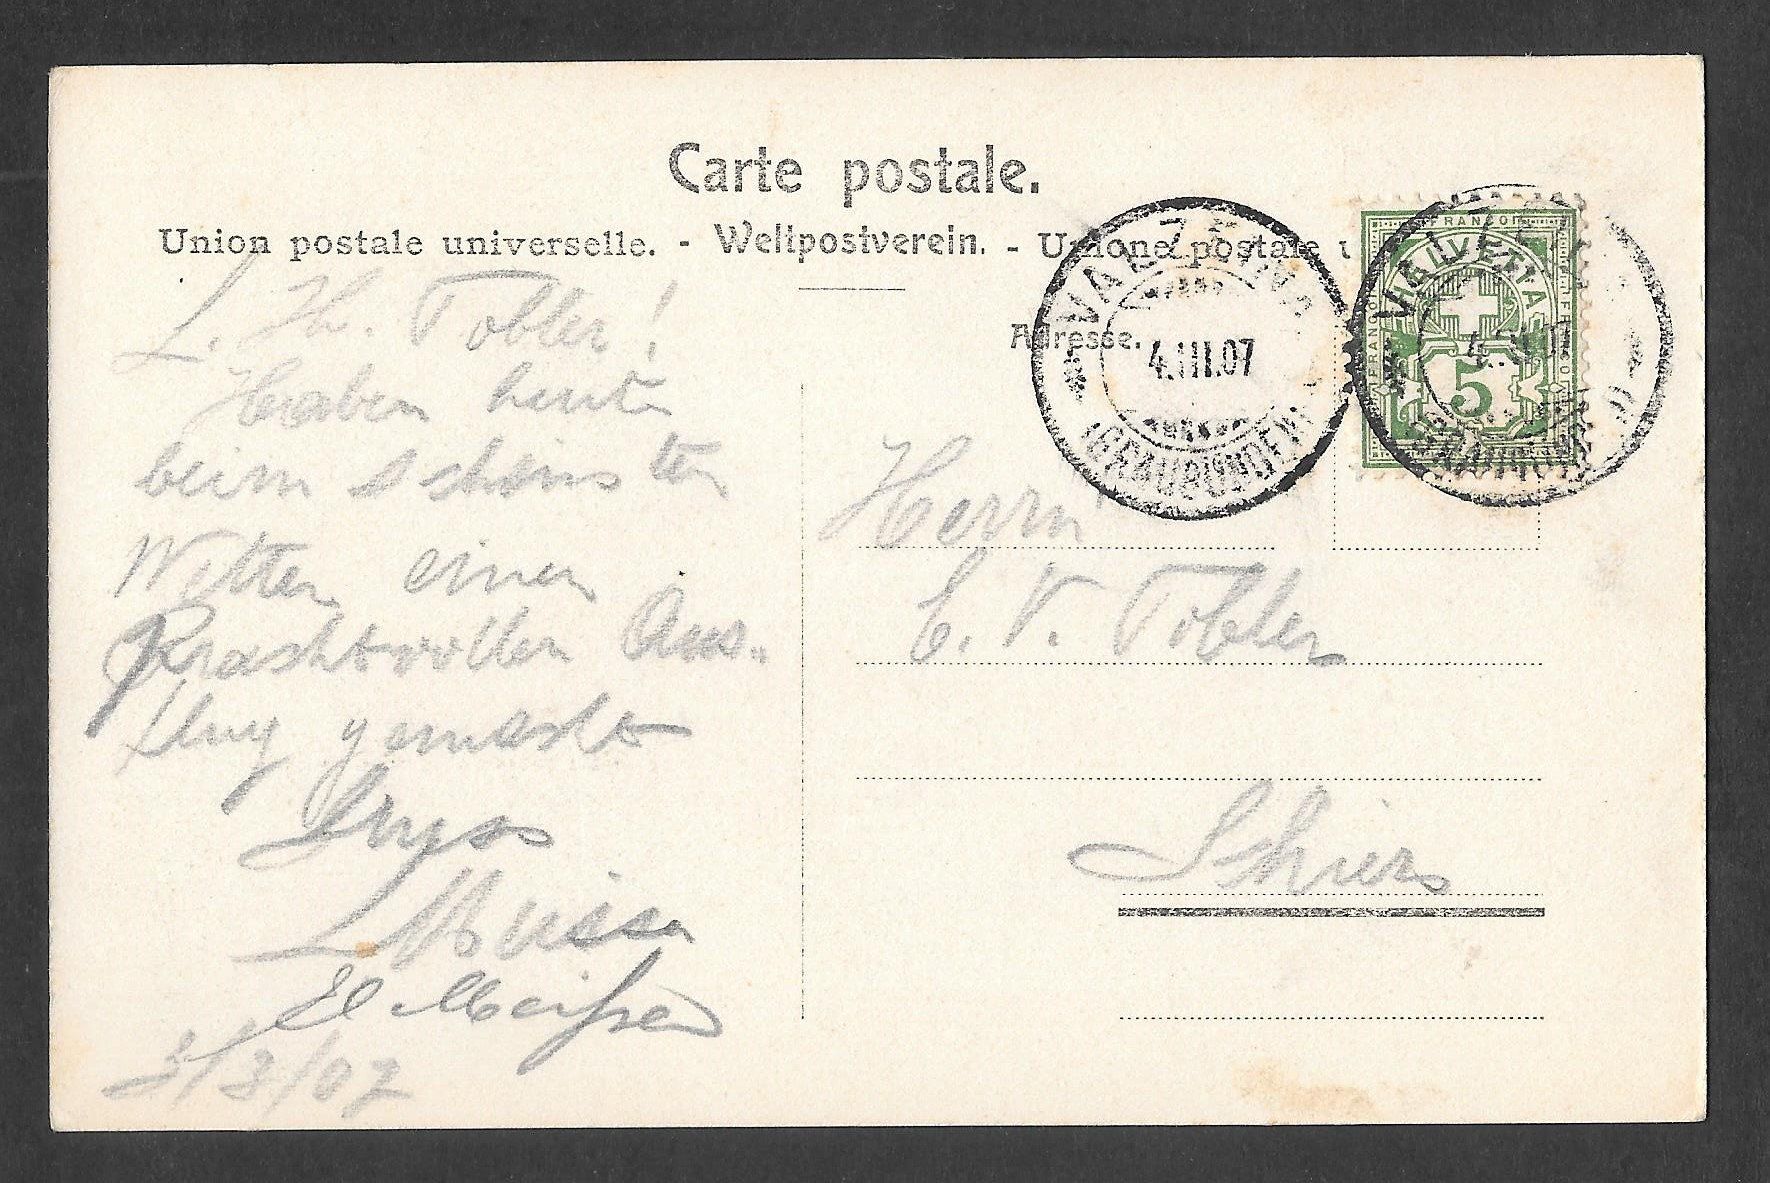 Carte postale.
Union postale universelle. - Weltpostverein. - Unione postale u
Adresse.
VALZEINA
4.III.07
(GRAUBÜNDEN)
FRANCO
HELVETIA
5
L. Hr. Tobler!
Haben heute
beim schönsten
Wetter einen
Prachtvollen Aus-
flug gemacht
Gruss
3/3/07
Herrn
C. V. Tobler
Schiers